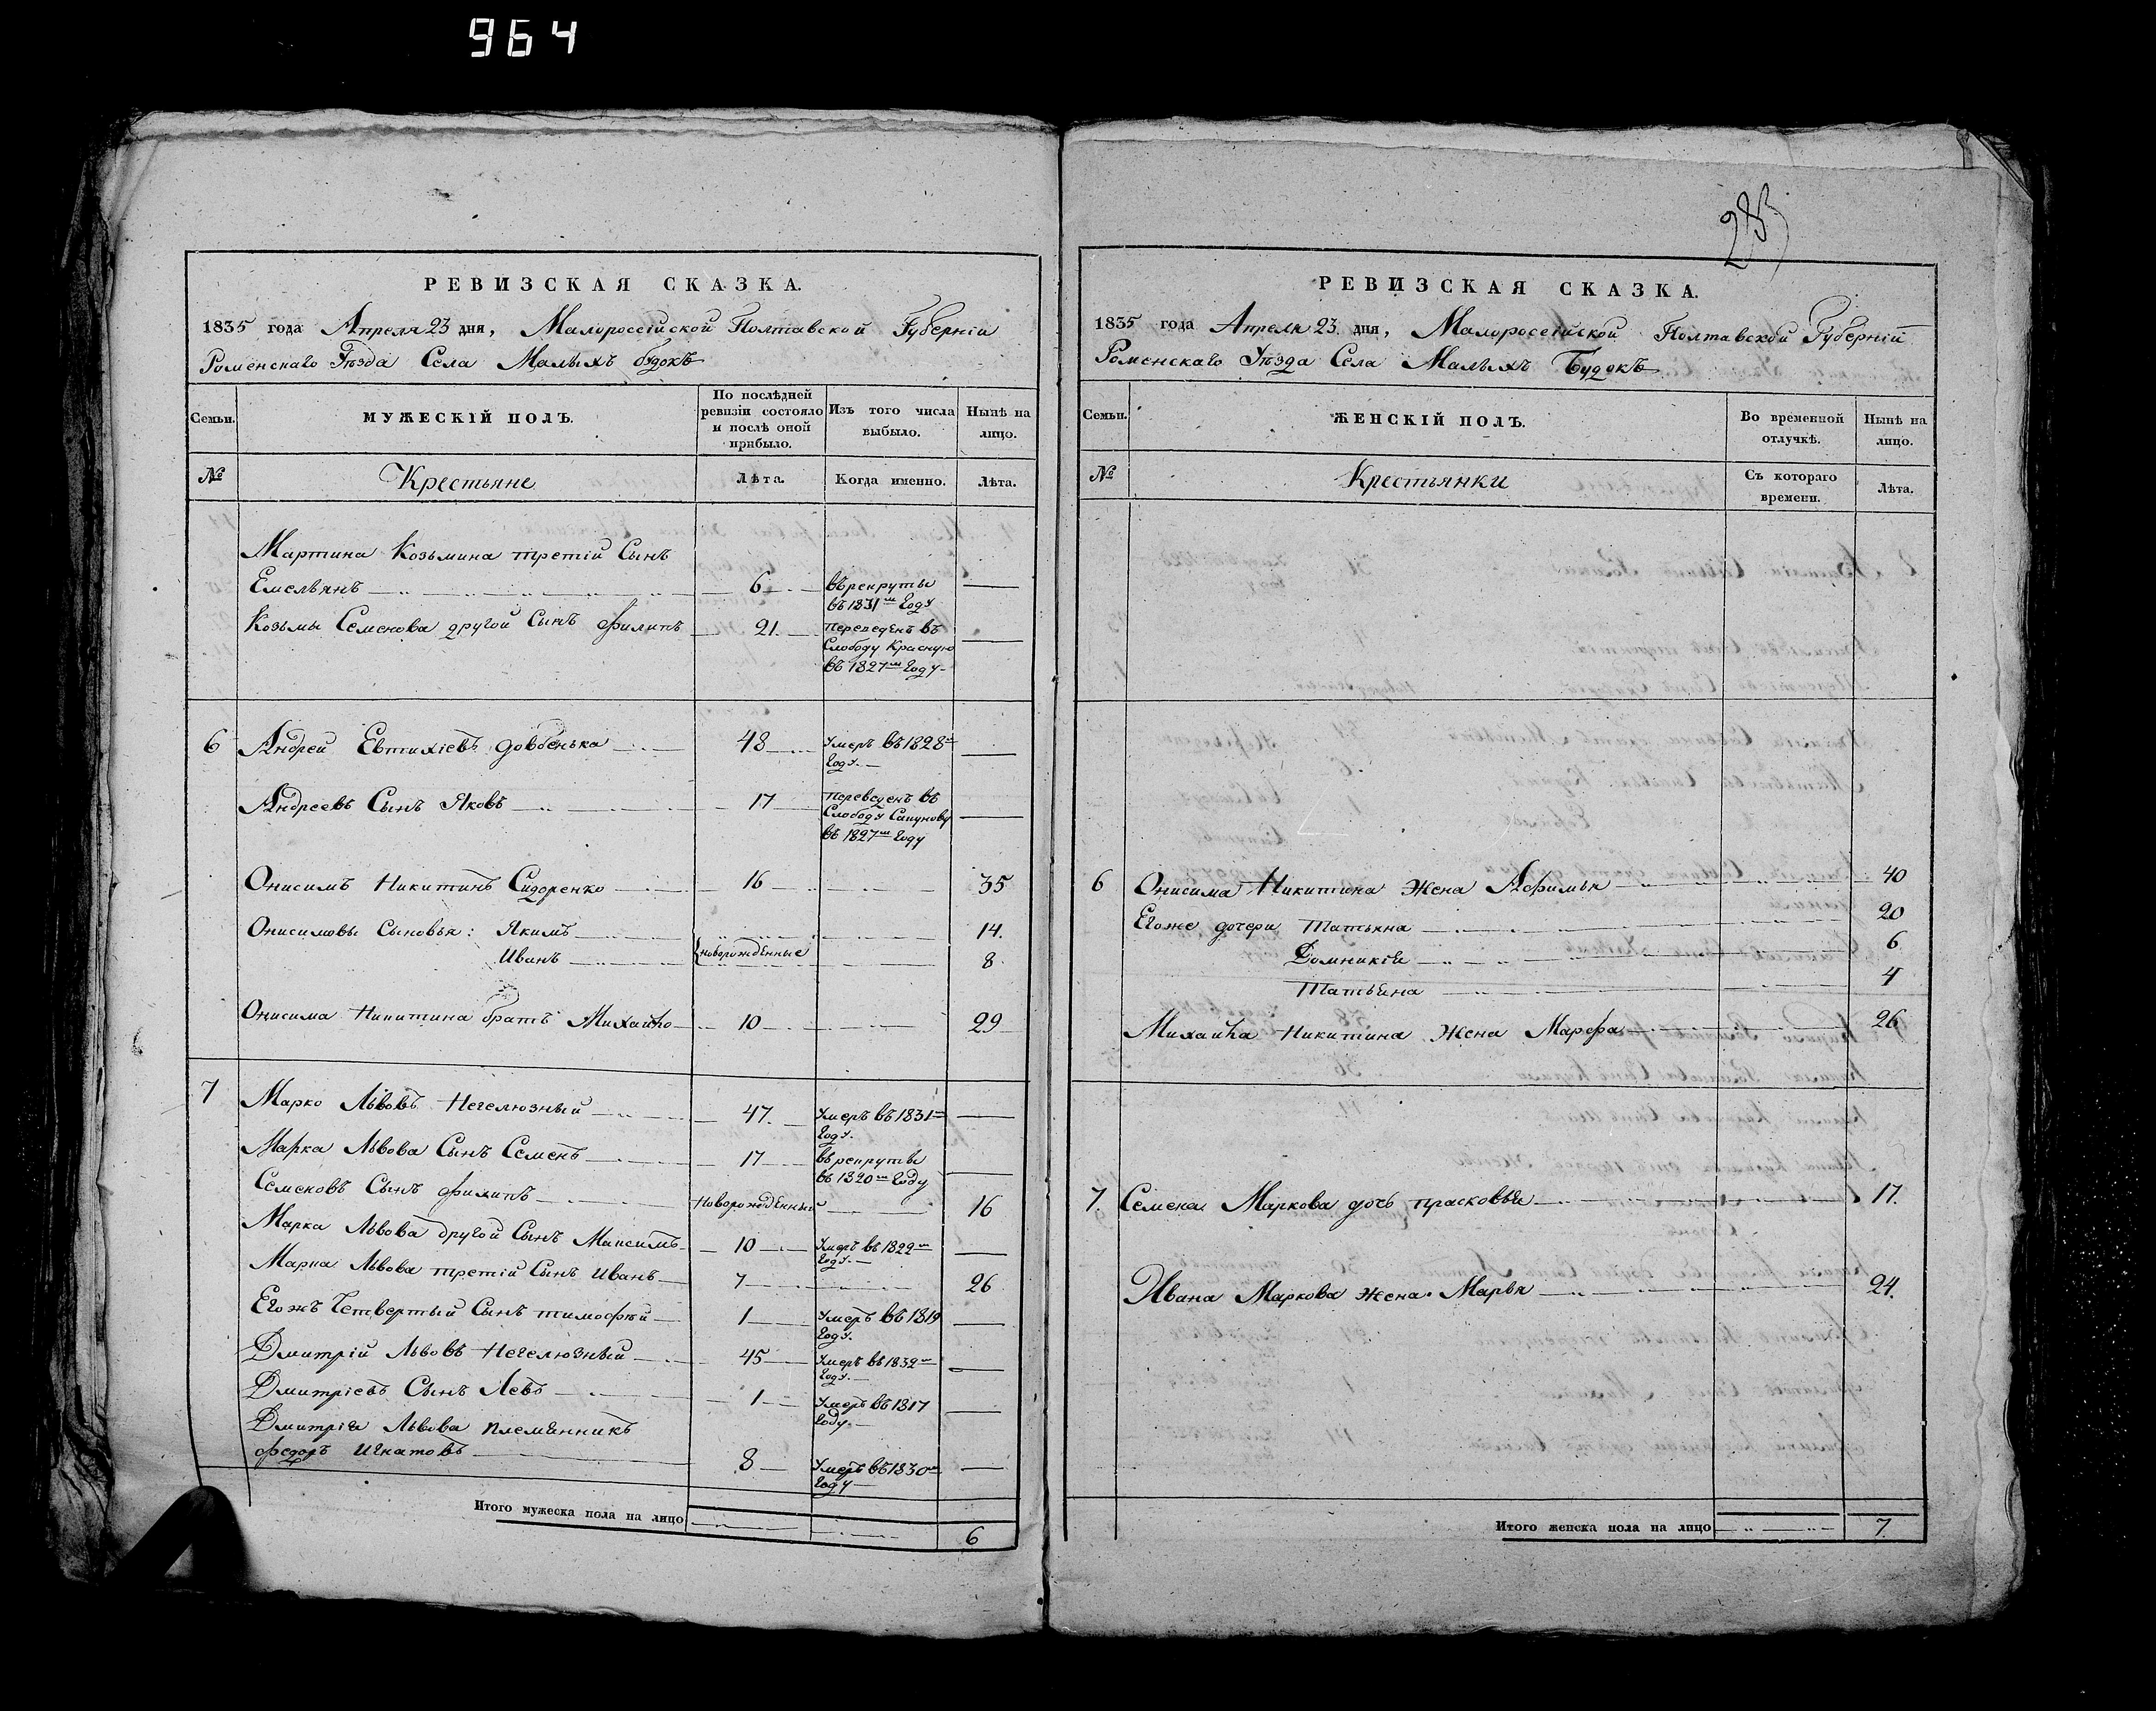 964
РЕВИЗСКАЯ СКАЗКА.
1835 года Апреля 23 дня, Малороссійской Полтавской Губерніи
Роменскаго Уѣзда Села Малыхъ будокъ
Семьи.
МУЖЕСКІЙ ПОЛЪ.
По послѣдней
ревизіи состояло
и послѣ оной
прибыло.
Изъ того числа
выбыло.
Нынѣ на
лицо.
№
Крестьяне
Лѣта.
Когда именно.
Лѣта.
Мартина Козьмина третій Сынъ
Емельянъ 6 въ рекруты
въ 1831м Году
Козьмы Семенова другой Сынъ филипъ 21. Переведенъ въ
Слободу Красную
въ 1827м Году
6 Андрей Евтихіевъ довбенька 48 Умеръ въ 1828м
Году.
Андреевъ Сынъ Яковъ 17 Переведенъ въ
Слободу Сапунову
въ 1827м Году
Онисимъ Никитинъ Сидоренко 16 35
Онисимовы Сыновья: Якимъ 14.
новорожденные
Иванъ 8
Онисима Никитина братъ Михайло 10 29
7 Марко Львовъ Нечелюзный 47. Умеръ въ 1831м
Году.
Марка Львова Сынъ Семенъ 17 въ рекруты
въ 1820м Году
Семеновъ Сынъ филипъ Новорожденный 16
Марка Львова другой Сынъ Максимъ 10 Умеръ въ 1822м
Году.
Марка Львова третій Сынъ Иванъ 7 26
Егожъ Четвертый Сынъ тимофѣй 1 Умеръ въ 1819
Году.
Дмитрій Львовъ Нечелюзный 45 Умеръ въ 1832м
Году.
Дмитріевъ Сынъ Левъ 1 Умеръ въ 1817
Году.
Дмитрія Львова племянникъ
федоръ Игнатовъ 8 Умеръ въ 1830м
Году
Итого мужеска пола на лицо 6
РЕВИЗСКАЯ СКАЗКА.
1835 года Апреля 23 дня, Малороссійской Полтавской Губерніи
Роменскаго Уѣзда Села Малыхъ Будокъ
Семьи.
ЖЕНСКІЙ ПОЛЪ.
Во временной
отлучкѣ.
Нынѣ на
лицо.
№
Крестьянки
Съ котораго
времени.
Лѣта.
6 Онисима Никитина Жена Афимья 40
Егоже дочери Татьяна 20
Домникія 6
Татьяна 4
Михайла Никитина Жена Марфа 26
7. Семена Маркова дочь прасковья 17.
Ивана Маркова жена Марья 24.
Итого женска пола на лицо 7